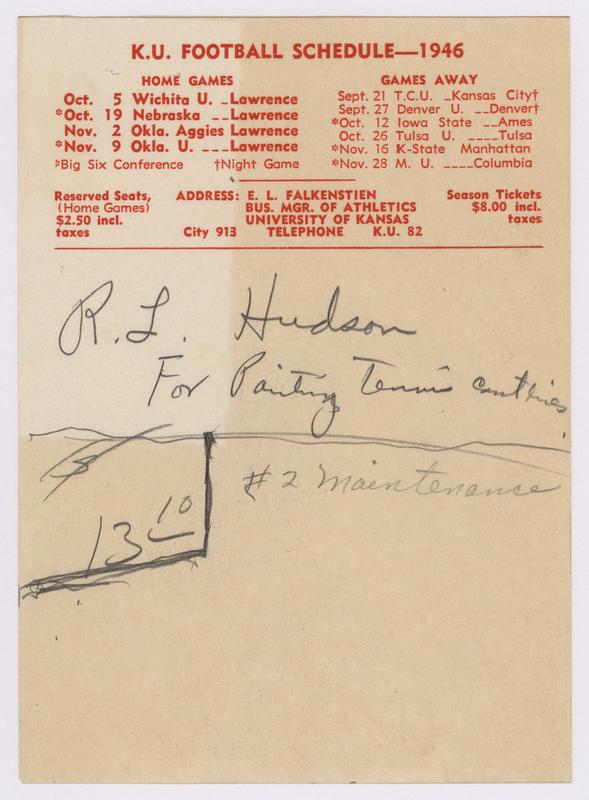 K.U. FOOTBALL SCHEDULE—1946
HOME GAMES
Oct. 5 Wichita U. _Lawrence
*Oct. 19 Nebraska __Lawrence
Nov. 2 Okla. Aggies Lawrence
*Nov. 9 Okla. U. ___Lawrence
*Big Six Conference †Night Game
GAMES AWAY
Sept. 21 T.C.U. _Kansas City†
Sept. 27 Denver U. __Denver†
*Oct. 12 Iowa State __Ames
Oct. 26 Tulsa U. ____Tulsa
*Nov. 16 K-State Manhattan
*Nov. 28 M. U. ____Columbia
Reserved Seats,
(Home Games)
$2.50 incl.
taxes
ADDRESS: E. L. FALKENSTIEN
BUS. MGR. OF ATHLETICS
UNIVERSITY OF KANSAS
City 913 TELEPHONE K.U. 82
Season Tickets
$8.00 incl.
taxes
R. L. Hudson
For Painting Tennis court lines
#2 Maintenance
13 10